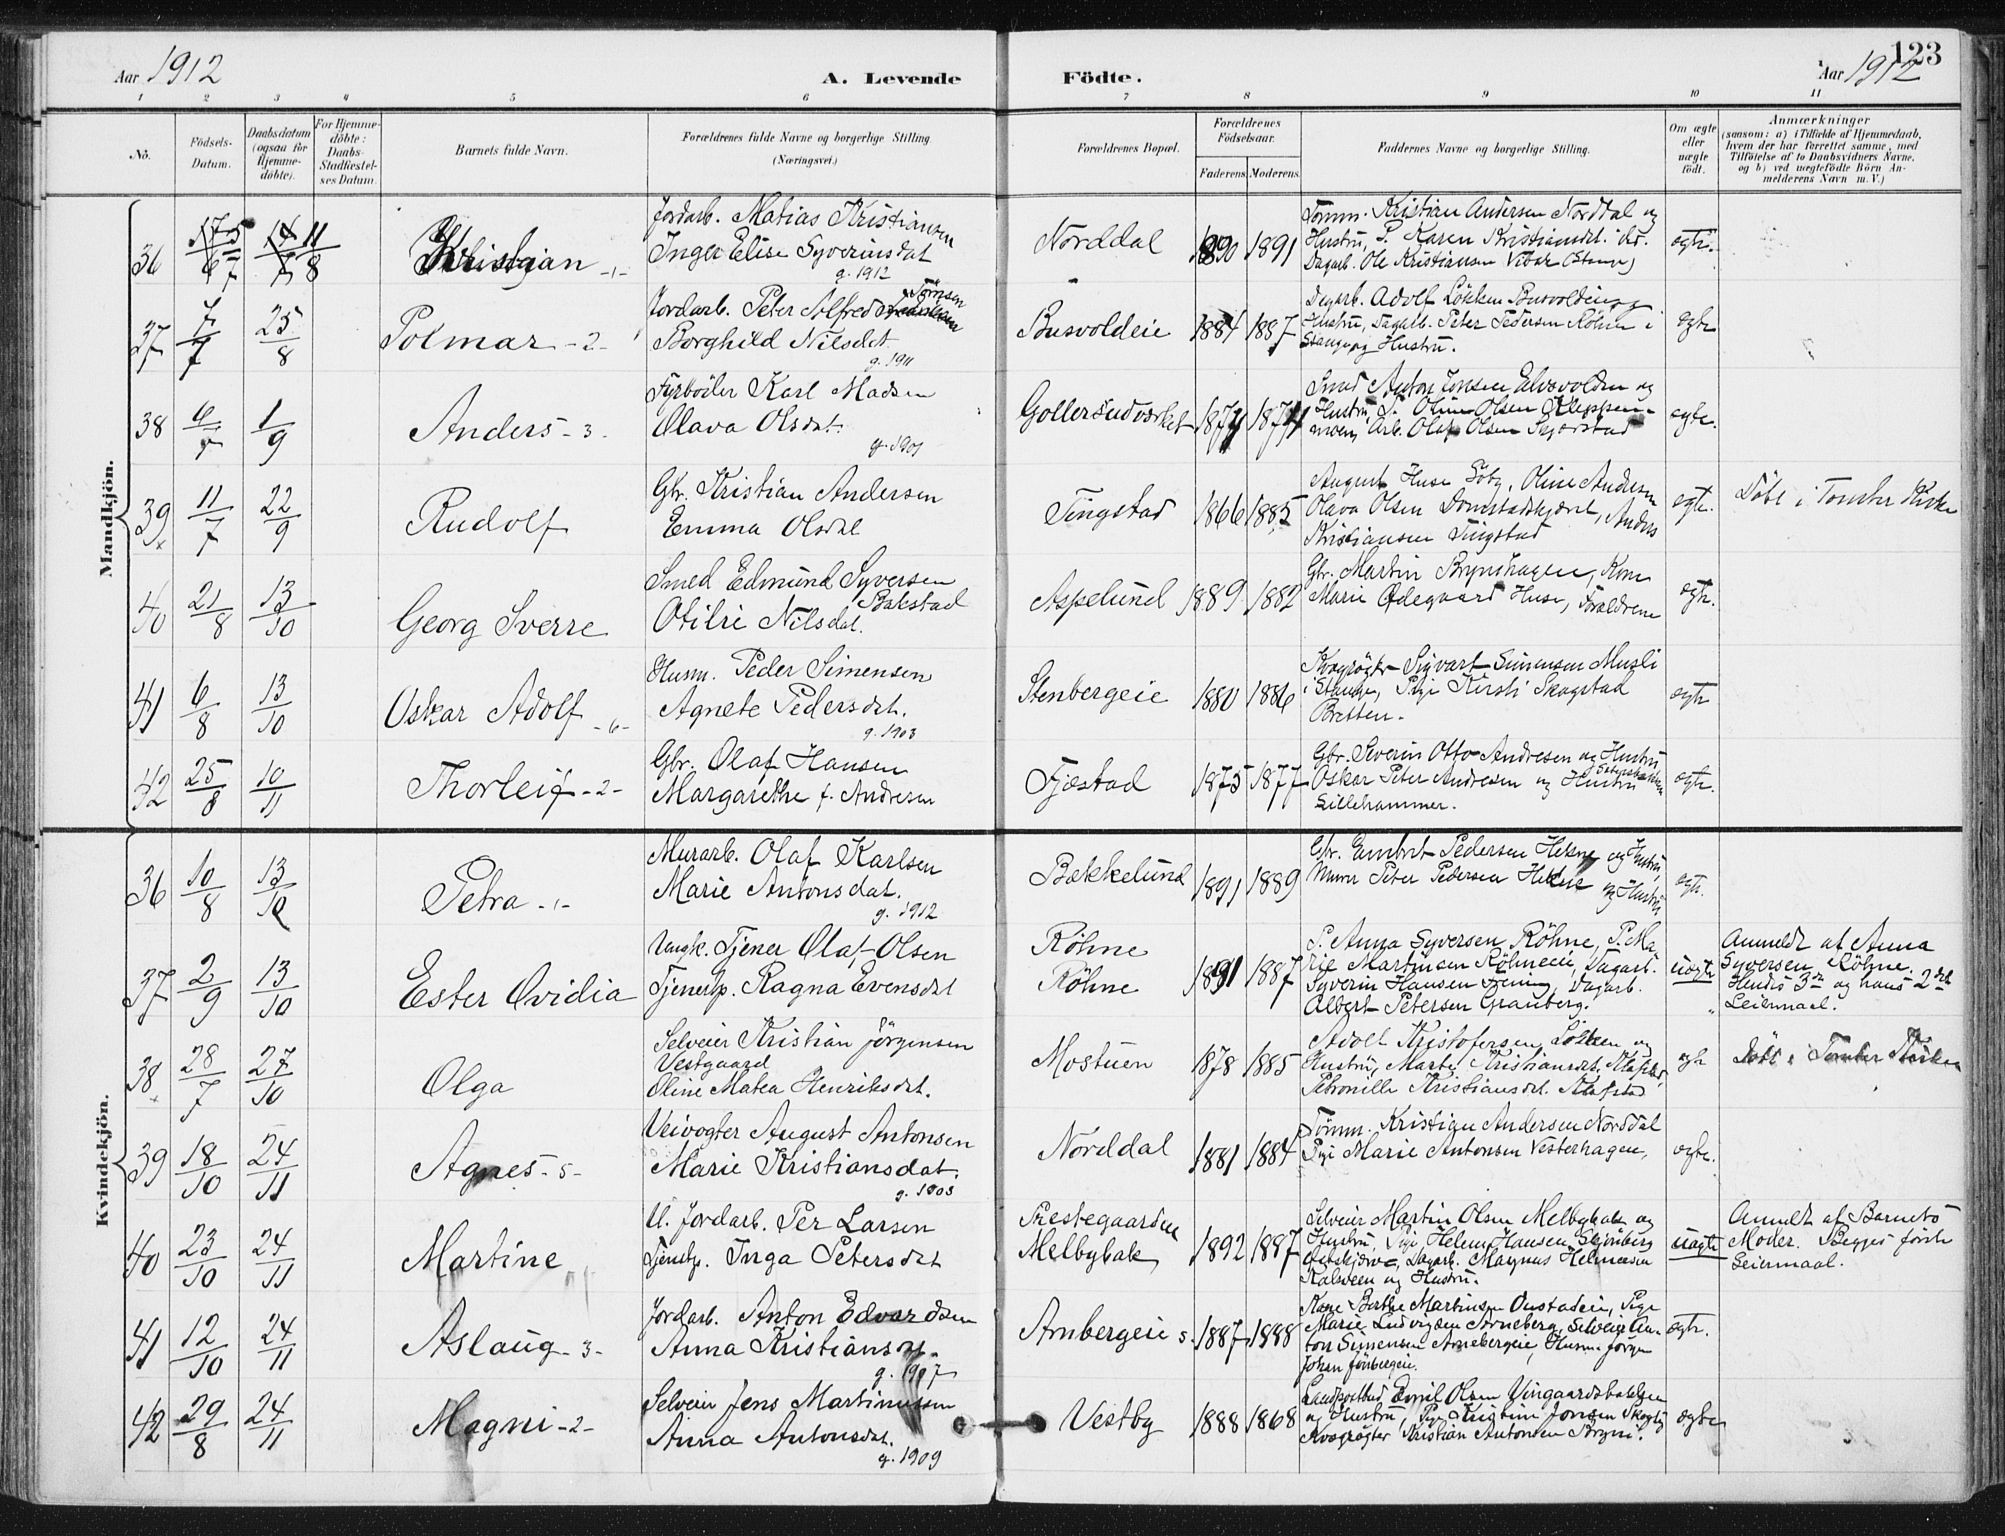 Aar 1912
A. Levende
Födte.
Aar 1912
123
1 2 3 4 5 6 7 8 9 10 11
No.
Födsels-
Datum.
Daabsdatum
(ogsaa for
Hjemme-
döbte).
For Hjemme-
döbte:
Daabs-
Stadfæstel-
ses Datum.
Barnets fulde Navn.
Forældrenes fulde Navne og borgerlige Stilling
(Næringsvei.)
Forældrenes Bopæl.
Forældrenes
Födselsaar.
Faderens
Moderens
Faddernes Navne og borgerlige Stilling.
Om ægte
eller
uægte
födt.
Anmærkninger
(saasom: a) i Tilfælde af Hjemmedaab,
hvem der har forrettet samme, med
Tilföielse af to Daabsvidners Navne,
og b) ved uægtefödte Börn An-
melderens Navn m. V.)
Mandkjön.
36 11/8 Kristian -1-
Jordarb. Matias Kristiansen
Inger Elise Syverinsdat
g. 1912
Norddal 1890 1891
Tømm. Kristian Andersen Norddal og
Hustru, P. Karen Kristiansdt.
Dagarb. Ole Kristiansen Vibar (Stange)
ægte.
37 7/7 25/8 Polmar -2-
Jordarb. Peter Alfred Tomsen
Borghild Nilsdt.
g. 1911
Busvoldeie 1884 1887
Dagarb. Adolf Løkken Busvoldeie og
Hustru, Dagarb. Peter Pedersen Röhne i
Stange og Hustru.
ægte
38 6/7 1/9 Anders -3-
Fyrböder Karl Madsen
Olava Olsdat.
g. 1901
1874 1874
Smed Anton Jonsen Elvsvolden og
Hustru, Oline Olsen Kleppen-
moen, Arb. Olaf Olsen
ægte.
39 11/7 22/9 Rudolf
Gbr. Kristian Andersen
Emma Olsdat
Tingstad 1866 1885
August Huse Göby, Oline Andersen
Olava Olsen Domstadskjæret, Anders
Kristiansen Tingstad
ægte.
Döbt i Tomter Kirke
40 21/8 13/10 Georg Sverre
Smed Edmund Syversen
Bakstad
Otilie Nilsdat.
Aspelund 1889 1882
Gbr. Martin Brynshagen, Kone
Marie Ödegaard Huse, Forældrene
ægte.
41 6/8 13/10 Oskar Adolf -6-
Husm. Peder Simensen
Agnete Pedersdat.
g. 1903
Stenbergeie 1880 1886
Kvægrögter Sigvart Simensen Musli
i Stange, Pige Kersti Skogstad
Bretten.
ægte
42 25/8 10/11 Thorleif -2-
Gbr. Olaf Hansen
Margarethe f. Andresen
Fjæstad 1875 1877
Gbr. Severin Otto Andresen og Hustru
Oskar Peter Andresen og Hustru
Lillehammer.
ægte.
Kvindekjön.
36 10/8 13/10 Petra -1-
Murarb. Olaf Karlsen
Marie Antonsdat.
g. 1912
Bækkelund 1891 1889
Gbr. Embret Pedersen Hekne og Hustru,
Murer Peter Pedersen Hekne og Hustru
ægte.
37 2/9 13/10 Ester Ovidia
Ungk. Tjener Olaf Olsen
Tjenestp. Ragna Evensdat
Röhne
Röhne
1891 1887
P. Anna Syversen Röhne, P. Ma-
rie Martinsen Röhneeie, Dagarb.
Syverin Hansen Freng, Dagarb.
Albert Petersen Granberg.
uægte
Anmeldt af Anna
Syversen Röhne.
Hendes 3die og hans 2det
Leiermaal.
38 28/7 27/10 Olga
Selveier Kristian Jörgensen
Vestgaard
Oline Matea Henriksdat.
Mostuen 1878 1885
Adolf Kristofersen Löken og
Hustru, Marte Kristiansdt.
Petronille Kristiansdt.
ægte
Döbt i Tomter Kirke
39 18/10 24/11 Agnes -5-
Veivogter August Antonsen
Marie Kristiansdat.
g. 1903
Norddal 1881 1884
Tömm. Kristian Andersen Norddal
Pige Marie Antonsen Vesterhagen,
ægte.
40 23/10 24/11 Martine
U. Jordarb. Per Larsen
Tjenestp. Inga Petersdat
Prestegaarden
Melbybak
1892 1887
Selveier Martin Olsen Melbybak og
Hustru, Pige Helene Hansen Stjernberg
Dagarb. Magnus Helmersen
Kalveen og Hustru.
uægte
Anmeldt af Barnets
Moder. Begges förste
Leiermaal.
41 12/10 24/11 Aslaug -3-
Jordarb. Anton Edvardsen
Anna Kristiansdt.
g. 1907
Arnbergeie s. 1887 1888
Kone Berthe Martinsen Onstadeie, Pige
Marie Ludvigsen Arneberg, Selveier An-
ton Simensen Arnebergeie, Husm. Jörgen
Johan
ægte.
42 29/8 24/11 Magni -2-
Selveier Jens Martinussen
Anna Antonsdat.
g. 1909
Vestby 1888 1868
Landpostbud Emil Olsen Vingaardsbakken
og Hustru, Pige Kristine Jonsen Skogly
Kvægrögter Kristian Antonsen Bryni.
ægte